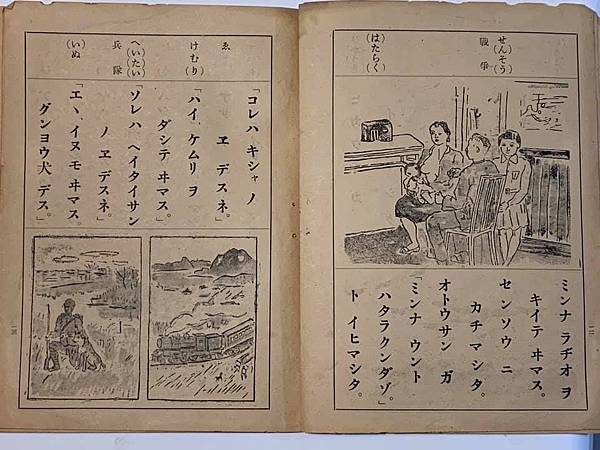 せんそう
戰爭
はたらく
ミンナ ラヂオ ヲ
キイテ ヰマス。
センソウ ニ
カチマシタ。
オトウサン ガ
「ミンナ ウント
ハタラクンダゾ。」
ト イヒマシタ。
ゑ
けむり
へいたい
兵隊
いぬ
「コレハ キシャ ノ
ヱ デスネ。」
「ハイ、ケムリ ヲ
ダシテ ヰマス。」
「ソレハ ヘイタイサン
ノ ヱ デスネ。」
「エ、イヌモ ヰマス。
グンヨウ犬 デス。」